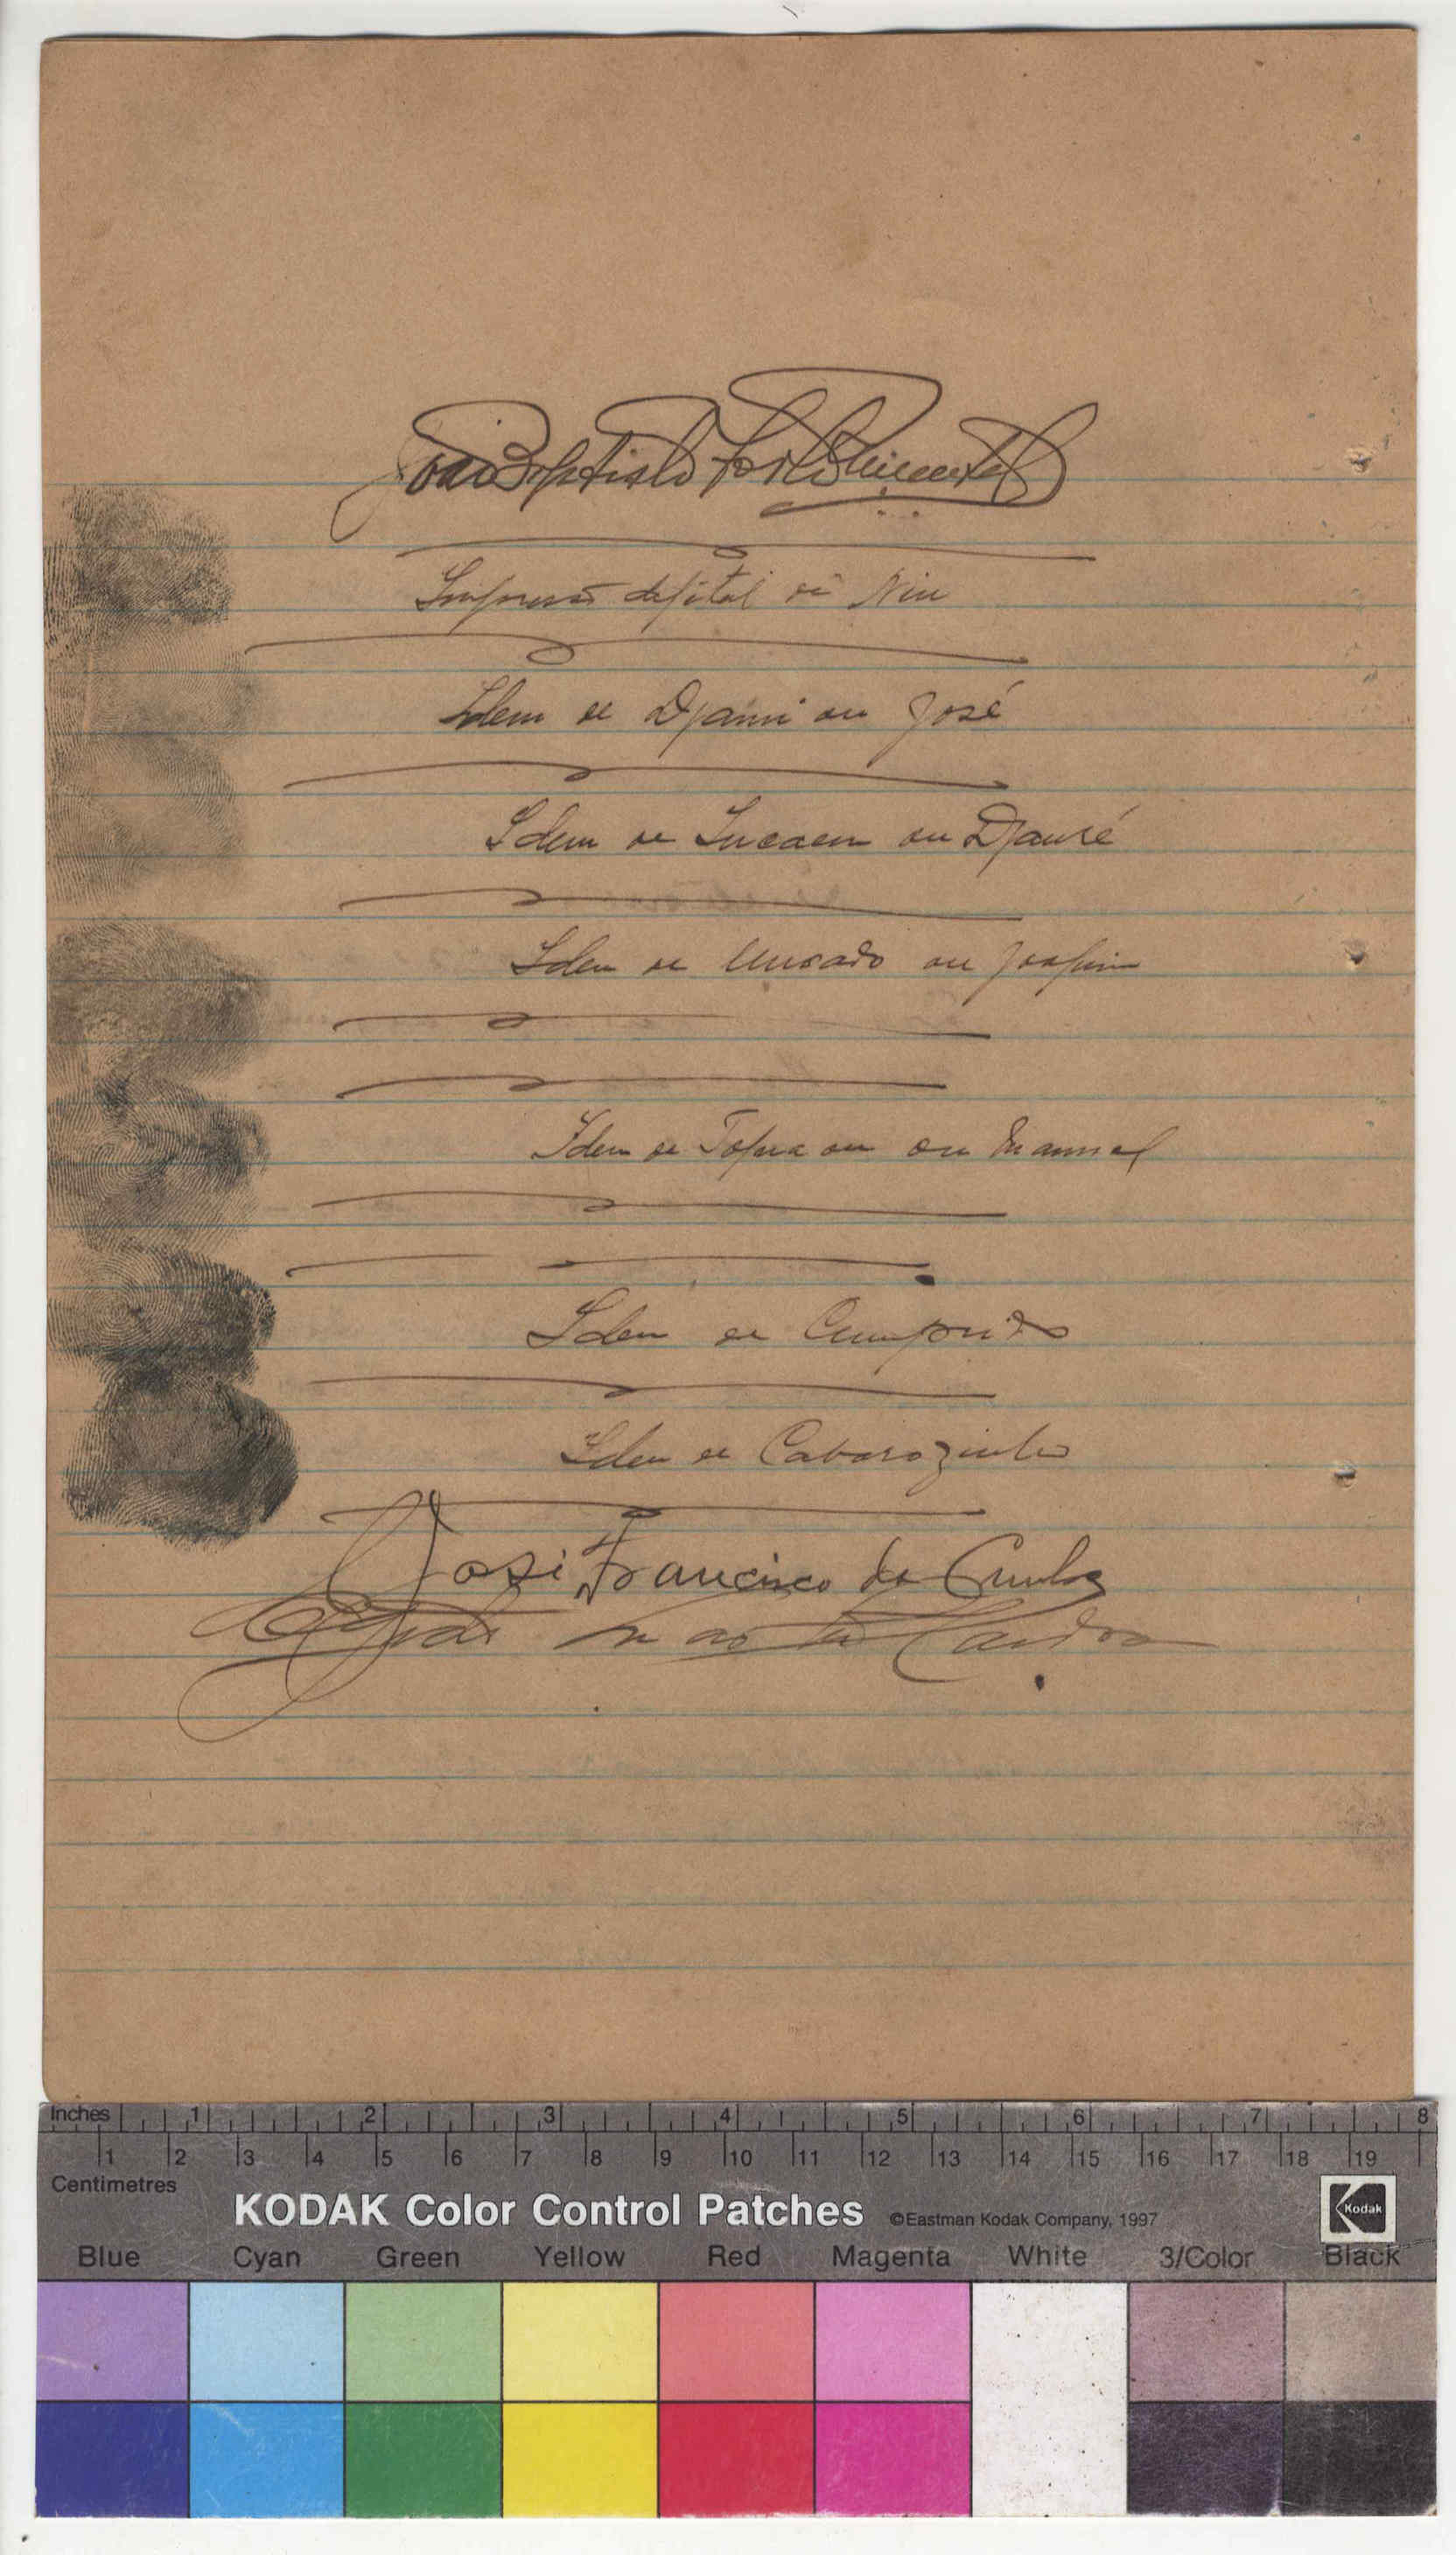 João Baptista
Impressão digital de Niu
Idem de Djami ou José
Idem de ou Djausé
Idem de ou Joaquim
Idem de ou ou Manuel
Idem de Cumprido
Idem de Cabarozinho
José Francisco da Cunha
Inches 1 2 3 4 5 6 7 8
1 2 3 4 5 6 7 8 9 10 11 12 13 14 15 16 17 18 19
Centimetres
KODAK Color Control Patches ©Eastman Kodak Company, 1997 Kodak
Blue Cyan Green Yellow Red Magenta White 3/Color Black